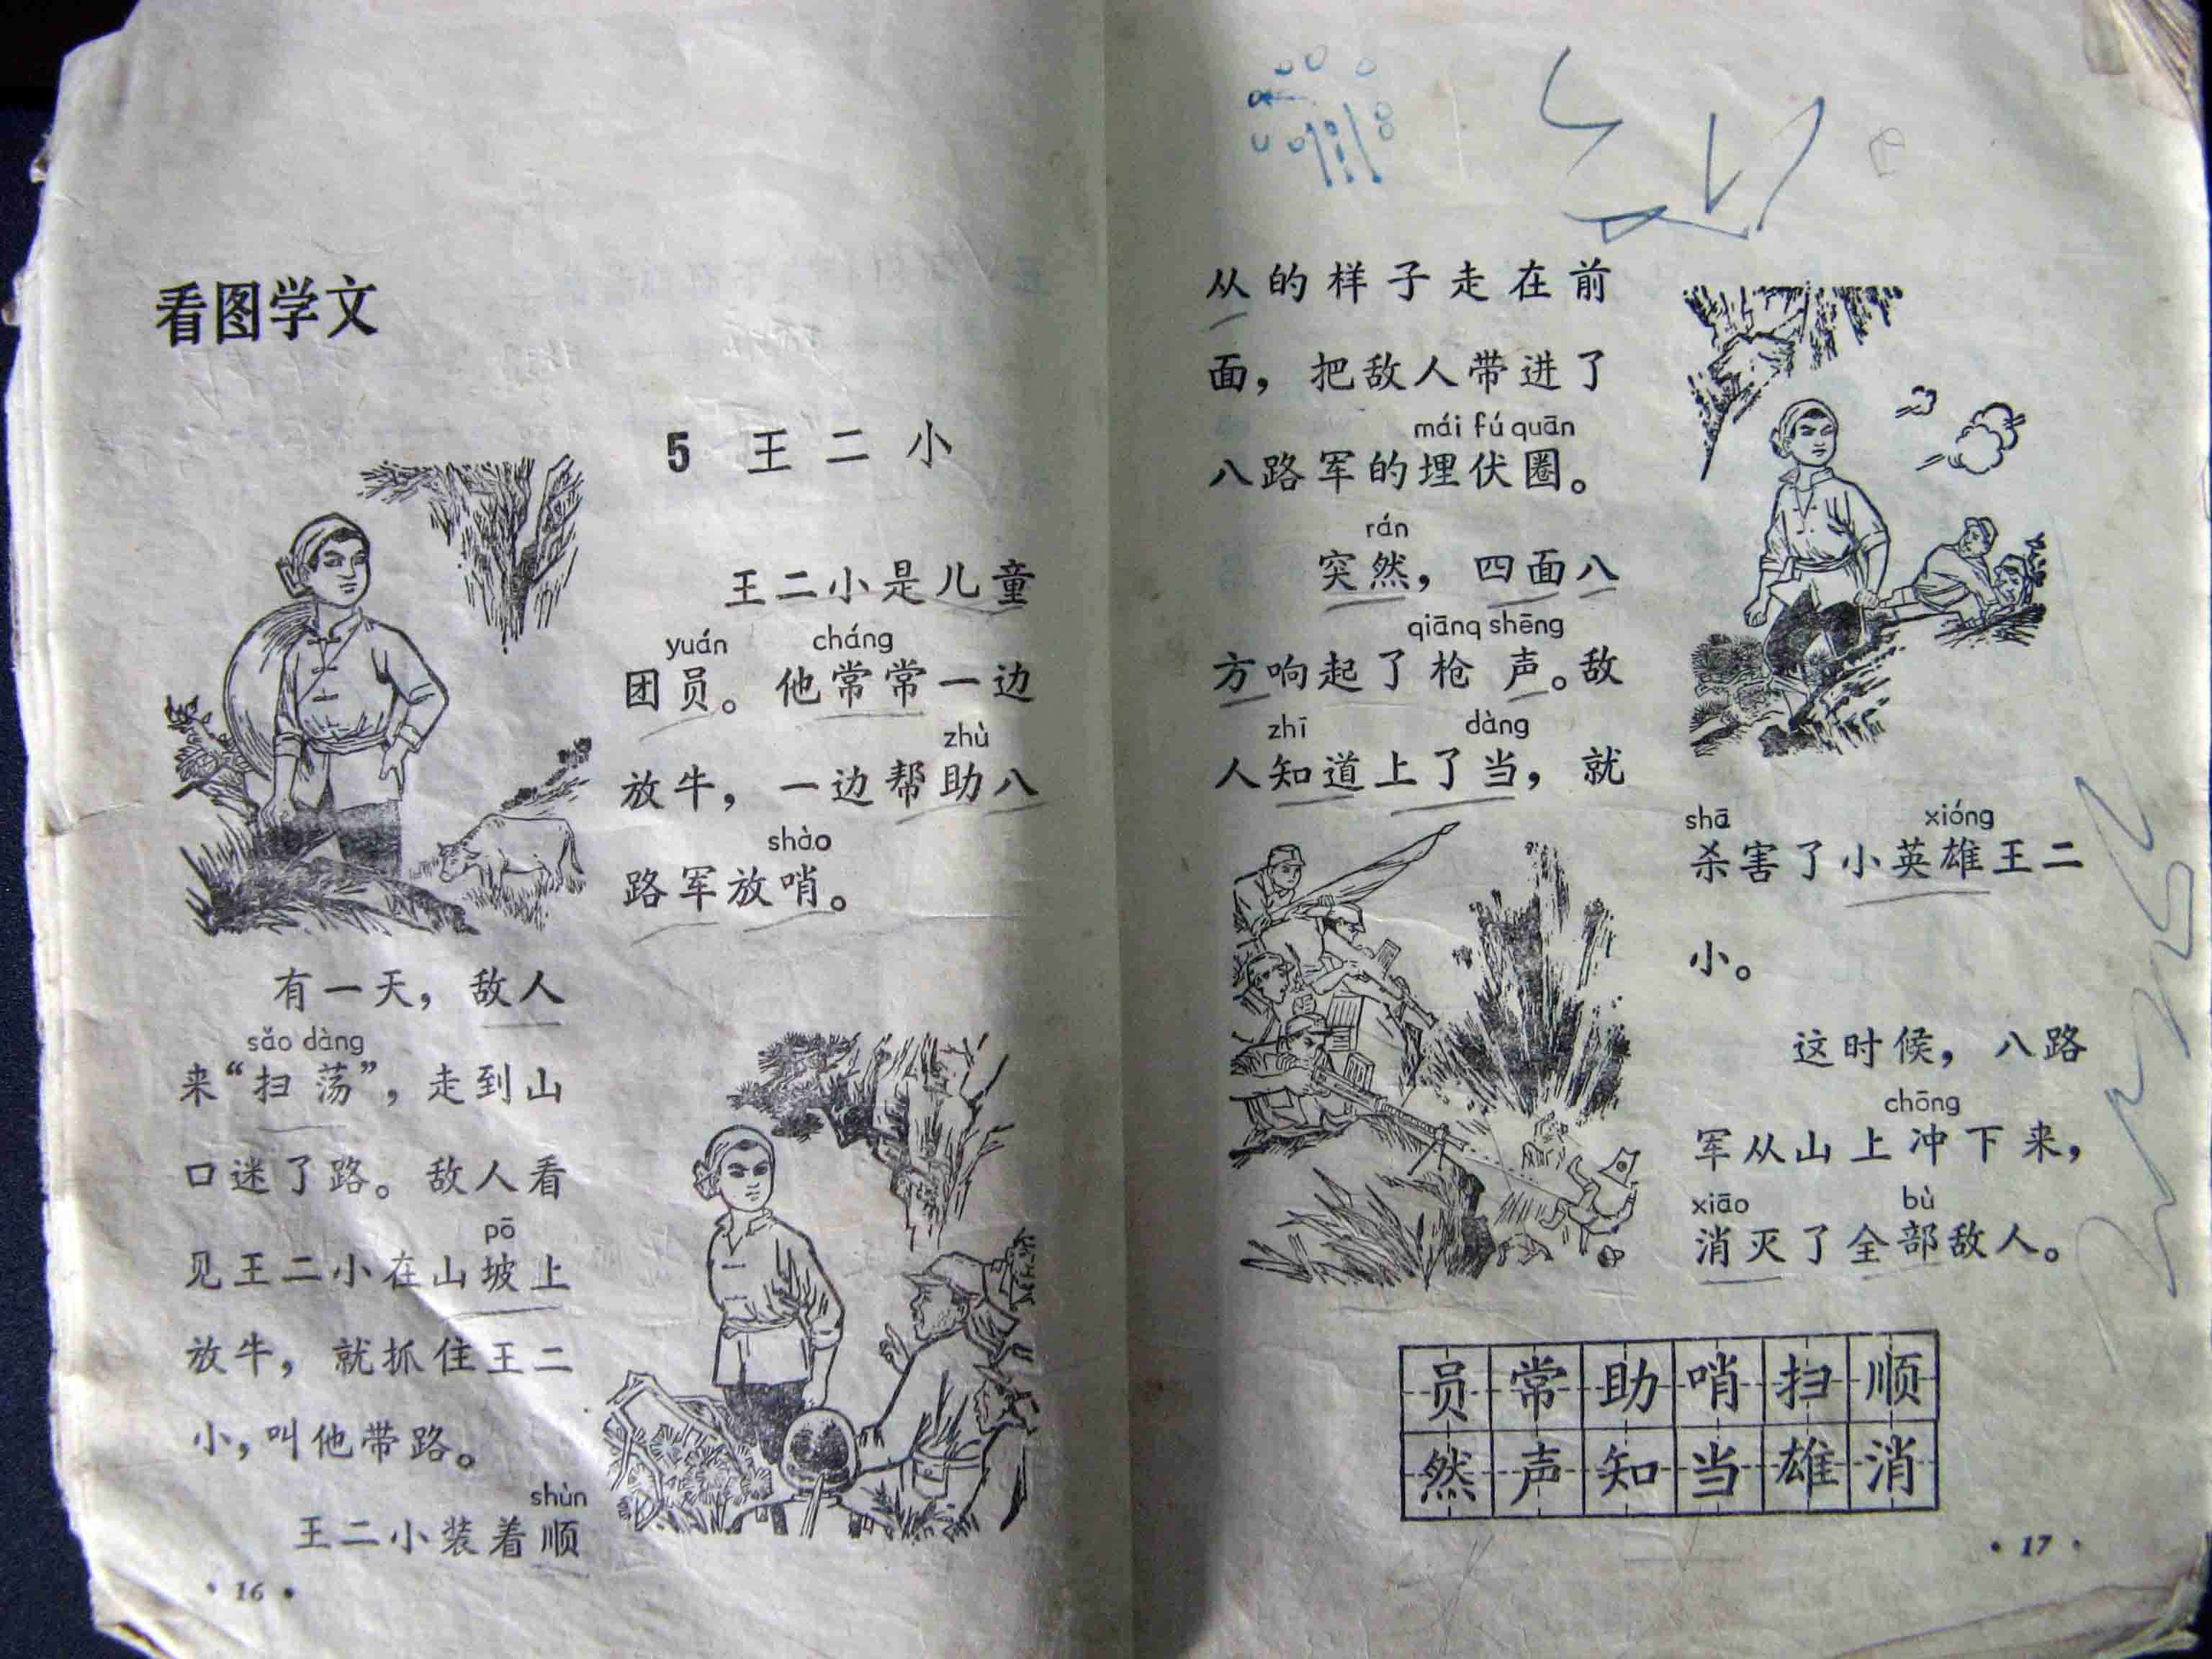 看图学文
5 王二小
王二小是儿童
yuán cháng
团员。他常常一边
zhù
放牛，一边帮助八
shào
路军放哨。
有一天，敌人
sǎo dàng
来“扫荡”，走到山
口迷了路。敌人看
pō
见王二小在山坡上
放牛，就抓住王二
小，叫他带路。
shùn
王二小装着顺
·16·
从的样子走在前
面，把敌人带进了
mái fú quān
八路军的埋伏圈。
rán
突然，四面八
qiāng shēng
方响起了枪声。敌
zhī dàng
人知道上了当，就
shā xióng
杀害了小英雄王二
小。
这时候，八路
chōng
军从山上冲下来，
xiāo bù
消灭了全部敌人。
员常助哨扫顺
然声知当雄消
·17·